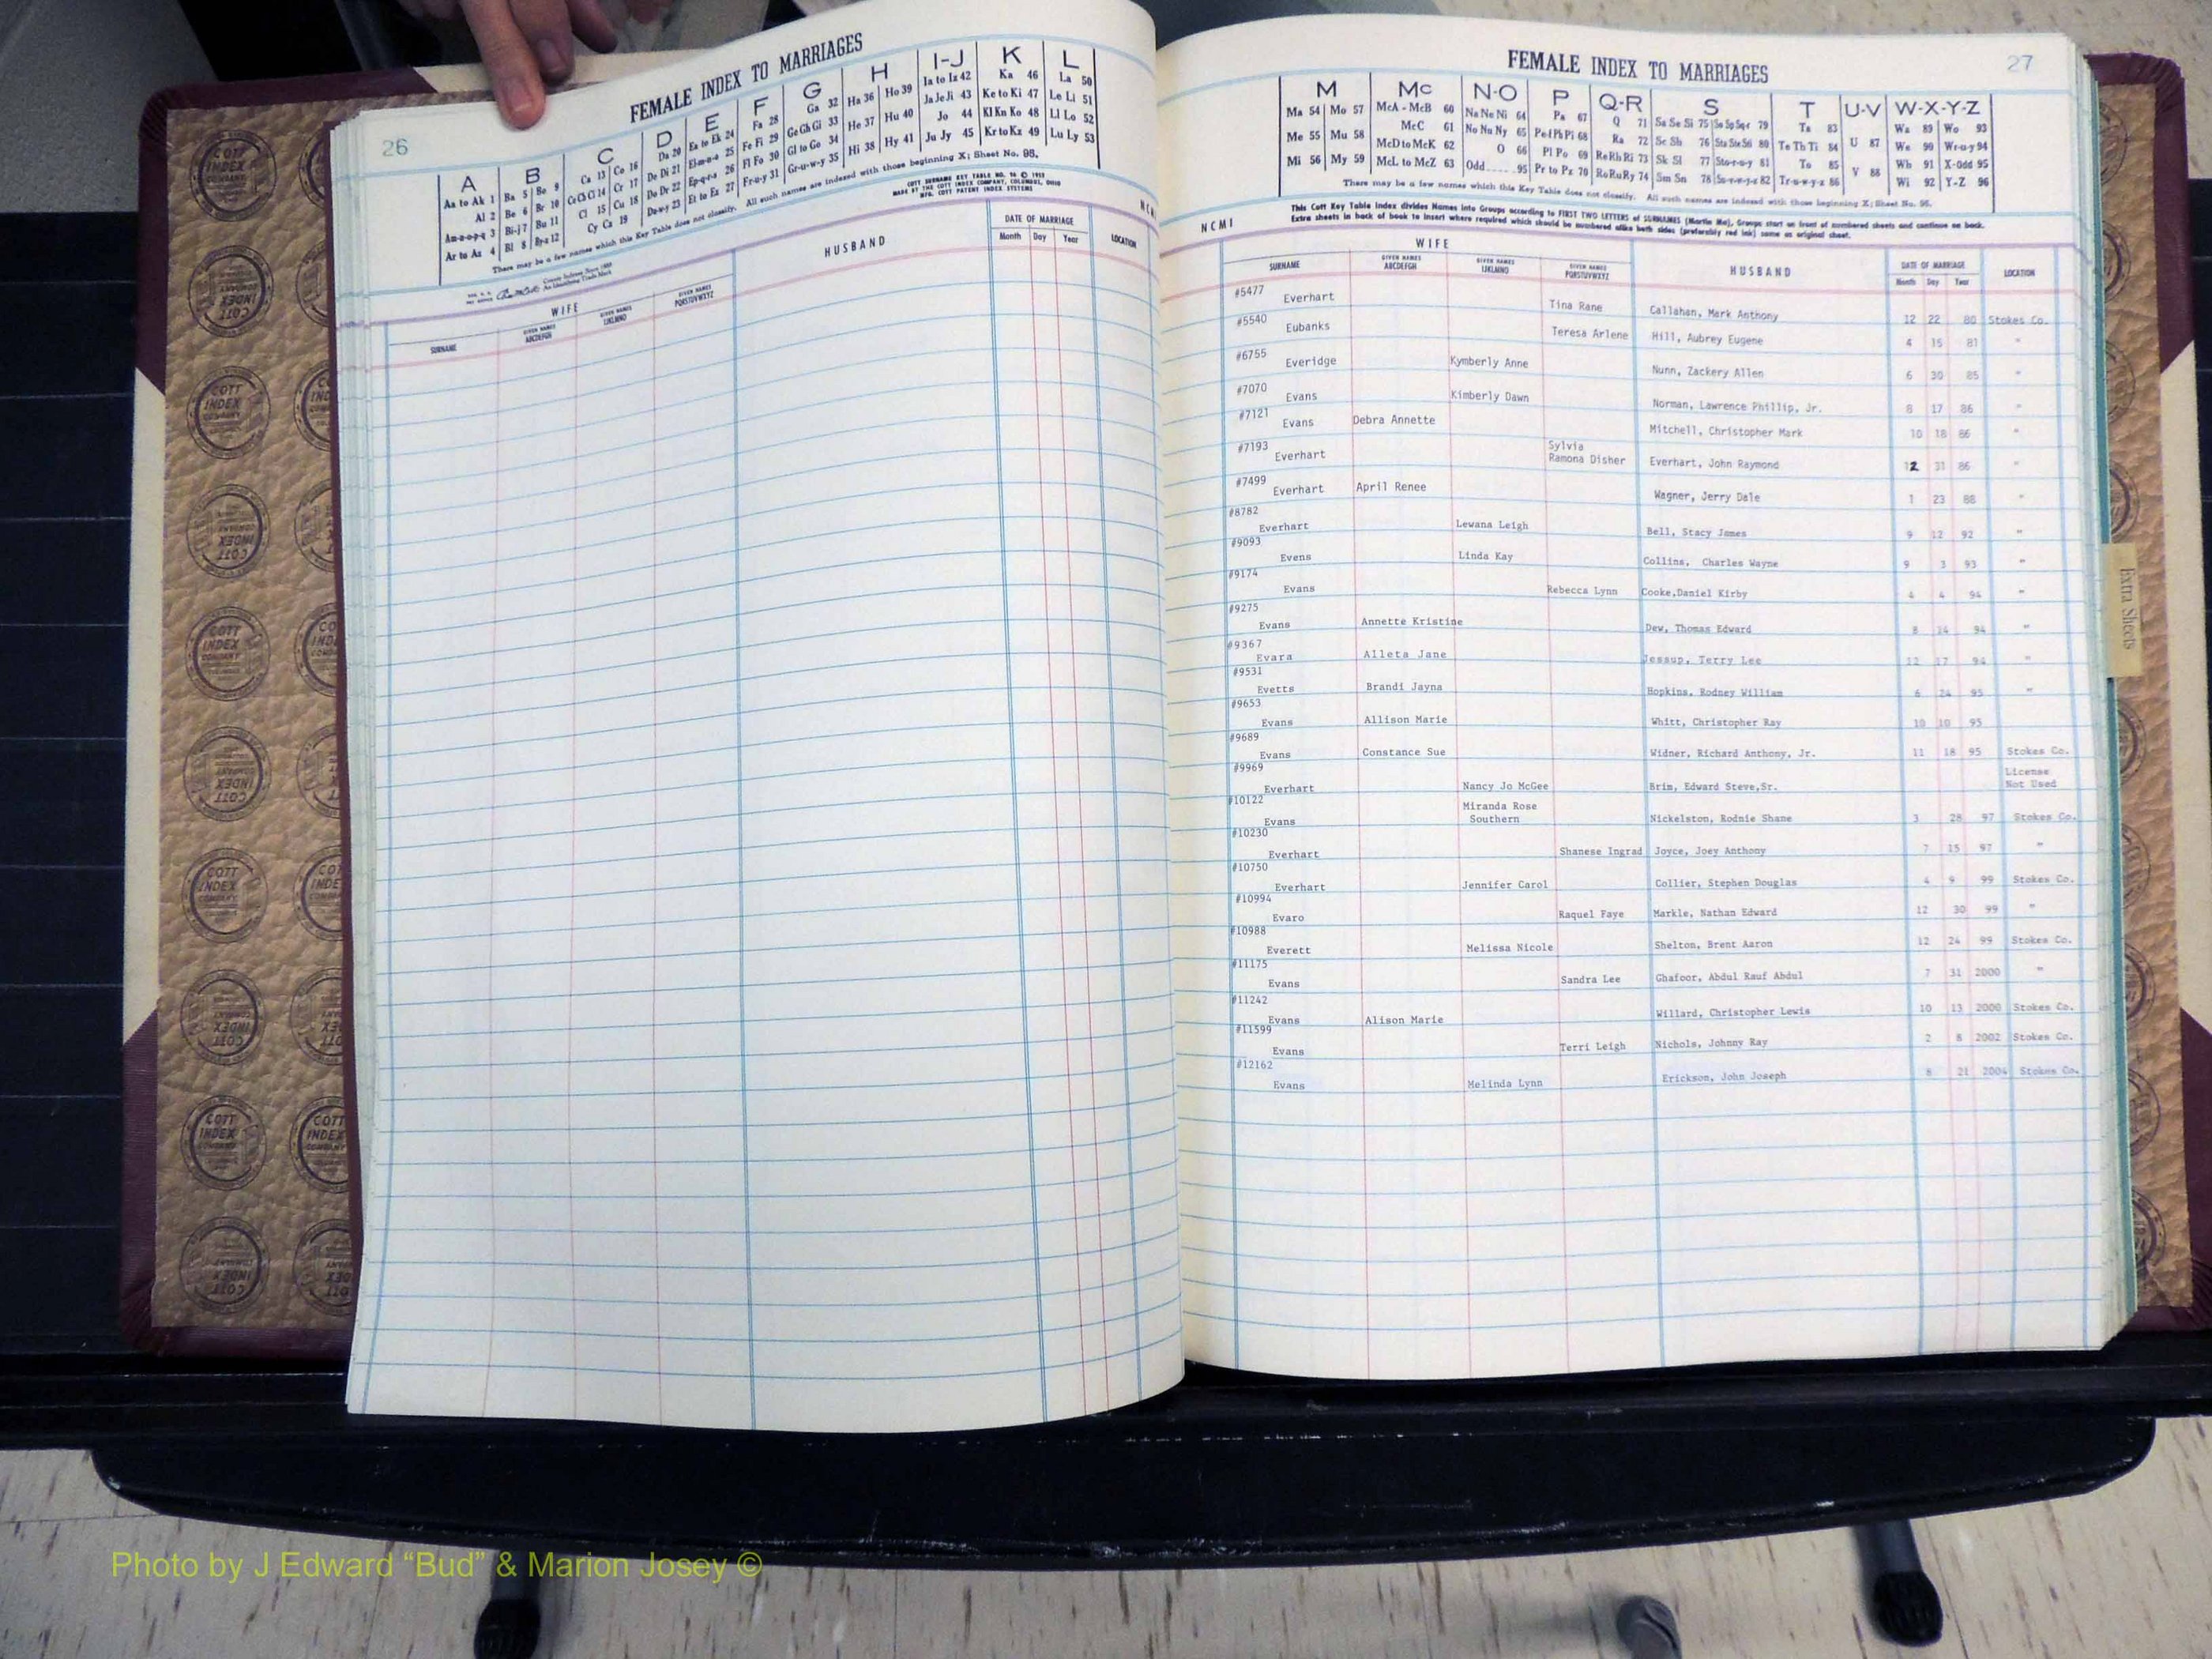 26
FEMALE INDEX TO MARRIAGES
A B C D E F G H I-J K L
Aa to Ak 1 Ba 5 Bo 9 Ca 13 Co 16 Da 20 Ea to Ek 24 Fa 28 Ga 32 Ha 36 Ho 39 Ia to Iz 42 Ka 46 La 50
Al 2 Be 6 Br 10 Ce Ch Ci 14 Cr 17 De Di 21 El-m-n-o 25 Fe Fi 29 Ge Gh Gi 33 He 37 Hu 40 Ja Je Ji 43 Ke to Ki 47 Le Li 51
Am-n-o-p-q 3 Bi-j 7 Bu 11 Cl 15 Cu 18 Do Dr 22 Ep-q-r-s 26 Fl Fo 30 Gl to Go 34 Hi 38 Hy 41 Jo 44 Kl Kn Ko 48 Ll Lo 52
Ar to Az 4 Bl 8 By-z 12 Cy Cz 19 Du-w-y 23 Et to Ez 27 Fr-u-y 31 Gr-u-w-y 35 Ju Jy 45 Kr to Kz 49 Lu Ly 53
There may be a few names which this Key Table does not classify. All such names are indexed with those beginning X; Sheet No. 95.
COTT SURNAME KEY TABLE NO. 96 © 1953
MADE BY THE COTT INDEX COMPANY, COLUMBUS, OHIO
MFG. COTT PATENT INDEX SYSTEMS
County Indexes Since 1888
An Identifying Trade Mark
WIFE HUSBAND DATE OF MARRIAGE LOCATION
SURNAME GIVEN NAMES ABCDEFGH GIVEN NAMES IJKLMNO GIVEN NAMES PQRSTUVWXYZ Month Day Year
FEMALE INDEX TO MARRIAGES 27
M Mc N-O P Q-R S T U-V W-X-Y-Z
Ma 54 Mo 57 McA - McB 60 Na Ne Ni 64 Pa 67 Q 71 Sa Se Si 75 So Sp Sq-r 79 Ta 83 U 87 Wa 89 Wo 93
Me 55 Mu 58 McC 61 No Nu Ny 65 Pe f Ph Pi 68 Ra 72 Sc Sh 76 Sta Ste Sti 80 Te Th Ti 84 V 88 We 90 Wr-u-y 94
Mi 56 My 59 McD to McK 62 O 66 Pl Po 69 Re Rh Ri 73 Sk Sl 77 Sto-r-u-y 81 To 85 Wh 91 X-Odd 95
McL to McZ 63 Odd 95 Pr to Pz 70 Ro Ru Ry 74 Sm Sn 78 Su-v-w-y-z 82 Tr-u-w-y-z 86 Wi 92 Y-Z 96
There may be a few names which this Key Table does not classify. All such names are indexed with those beginning X; Sheet No. 95.
This Cott Key Table Index divides Names into Groups according to FIRST TWO LETTERS of SURNAMES (Martin Ma), Groups start on front of numbered sheets and continue on back.
Extra sheets in back of book to insert where required which should be numbered alike both sides (preferably red ink) same as original sheet.
NCMI
WIFE HUSBAND DATE OF MARRIAGE LOCATION
SURNAME GIVEN NAMES ABCDEFGH GIVEN NAMES IJKLMNO GIVEN NAMES PQRSTUVWXYZ Month Day Year
#5477 Everhart Tina Rane Callahan, Mark Anthony 12 22 80 Stokes Co.
#5540 Eubanks Teresa Arlene Hill, Aubrey Eugene 4 15 81 "
#6755 Everidge Kymberly Anne Nunn, Zackery Allen 6 30 85 "
#7070 Evans Kimberly Dawn Norman, Lawrence Phillip, Jr. 8 17 86 "
#7121 Evans Debra Annette Mitchell, Christopher Mark 10 18 86 "
#7193 Everhart Sylvia Ramona Disher Everhart, John Raymond 12 31 86 "
#7499 Everhart April Renee Wagner, Jerry Dale 1 23 88 "
#8782 Everhart Lewana Leigh Bell, Stacy James 9 12 92 "
#9093 Evens Linda Kay Collins, Charles Wayne 9 3 93 "
#9174 Evans Rebecca Lynn Cooke,Daniel Kirby 4 4 94 "
#9275 Evans Annette Kristine Dew, Thomas Edward 8 14 94 "
#9367 Evara Alleta Jane Jessup, Terry Lee 12 17 94 "
#9531 Evetts Brandi Jayna Hopkins, Rodney William 6 24 95 "
#9653 Evans Allison Marie Whitt, Christopher Ray 10 10 95
#9689 Evans Constance Sue Widner, Richard Anthony, Jr. 11 18 95 Stokes Co.
#9969 Everhart Nancy Jo McGee Brim, Edward Steve,Sr. License Not Used
#10122 Evans Miranda Rose Southern Nickelston, Rodnie Shane 3 28 97 Stokes Co.
#10230 Everhart Shanese Ingrad Joyce, Joey Anthony 7 15 97 "
#10750 Everhart Jennifer Carol Collier, Stephen Douglas 4 9 99 Stokes Co.
#10994 Evaro Raquel Faye Markle, Nathan Edward 12 30 99 "
#10988 Everett Melissa Nicole Shelton, Brent Aaron 12 24 99 Stokes Co.
#11175 Evans Sandra Lee Ghafoor, Abdul Rauf Abdul 7 31 2000 "
#11242 Evans Alison Marie Willard, Christopher Lewis 10 13 2000 Stokes Co.
#11599 Evans Terri Leigh Nichols, Johnny Ray 2 8 2002 Stokes Co.
#12162 Evans Melinda Lynn Erickson, John Joseph 8 21 2004 Stokes Co.
Extra Sheets
COTT INDEX COMPANY
Photo by J Edward “Bud” & Marion Josey ©